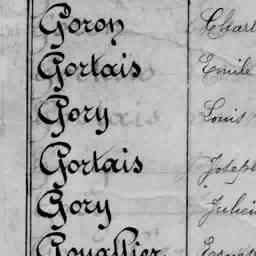 Goron Charl
Gortais Emile
Gory Louis
Gortais Joseph
Gory Julien
Goupllier